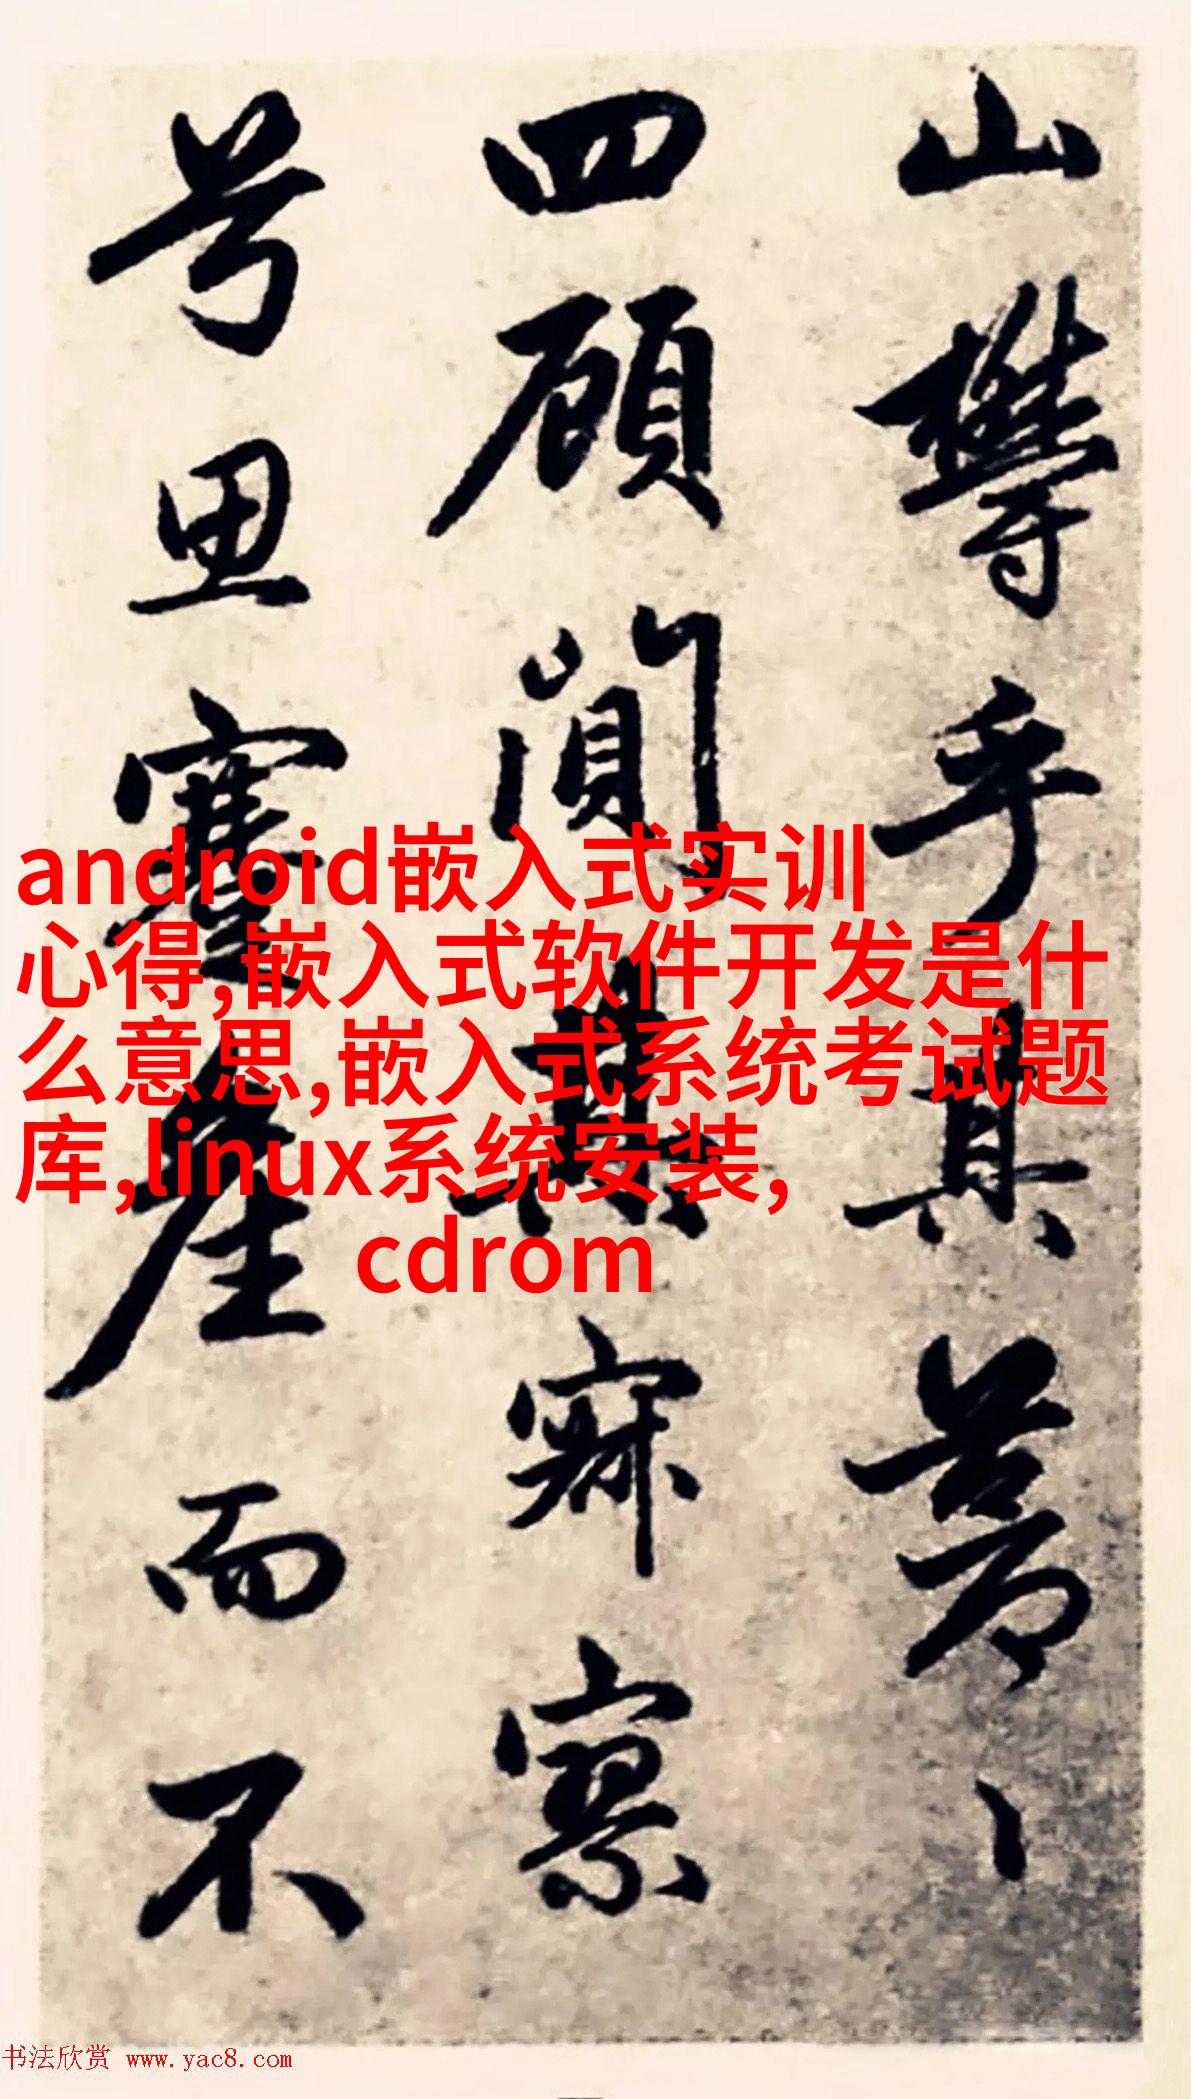 山欝乎其
四顧闃其寂寥
兮思蹇産而不
android嵌入式实训
心得,嵌入式软件开发是什
么意思,嵌入式系统考试题
库,linux系统安装,
cdrom
书法欣赏 www.yac8.com